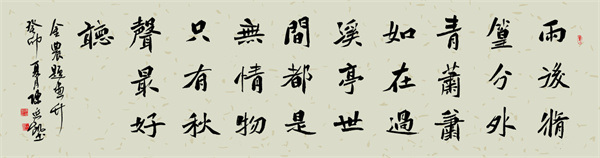 雨後脩
篁分外
青蕭蕭
如在過
溪亭世
間都是
無情物
只有秋
聲最好
聽
金農題畫竹
癸卯夏月